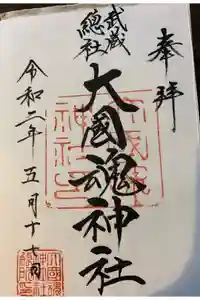 奉拝
武蔵
總社
大國魂神社
令和二年五月十七日